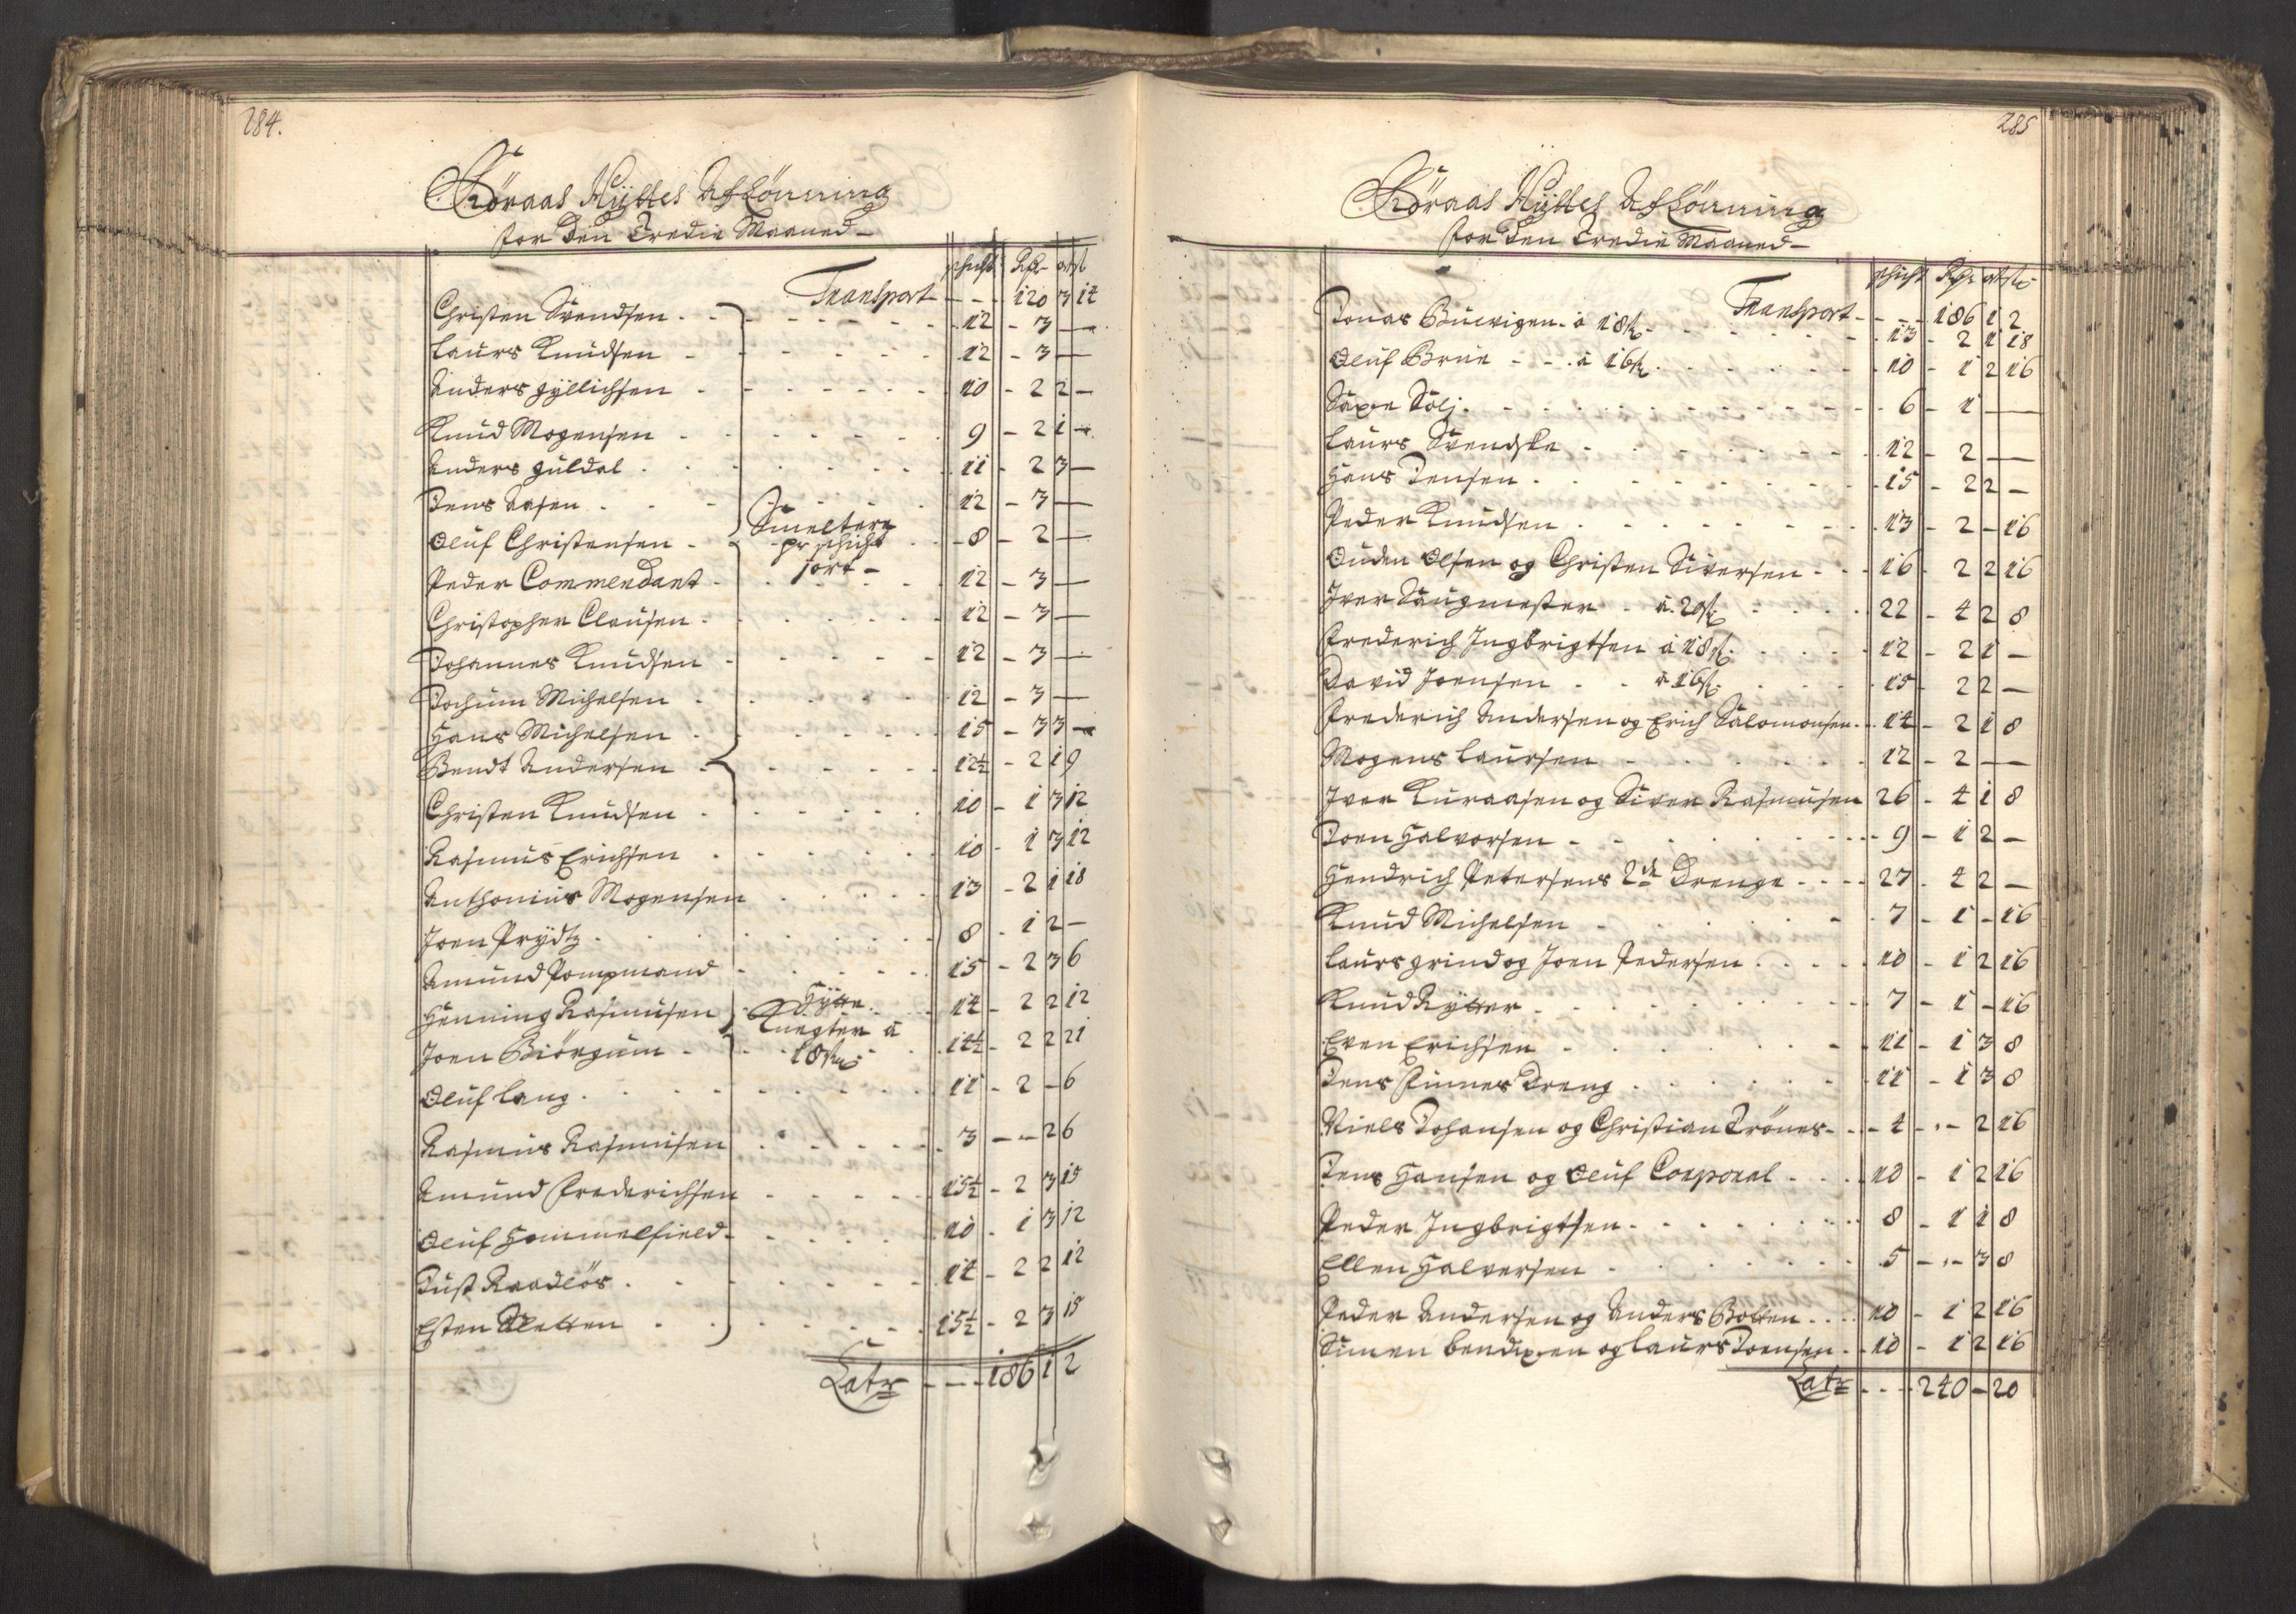 284.
Röraas Hÿttes Aflönning
for den Tredie Maaned -
schicht Rdr ort s
Transport - - - 120 3 14
Christen Svendsen - 12 - 3 -
Laurs Knudsen - 12 - 3 -
Anders gÿllichsen - 10 - 2 2 -
Knud Mogensen - 9 - 2 1 -
Anders güldal - 11 - 2 3 -
Jens Aasen - 12 - 3 -
Smeltere pr schicht 1 ort -
Oluf Christensen - 8 - 2 -
Peder Commendant - 12 - 3 -
Christopher Clausen - 12 - 3 -
Johannes Knudsen - 12 - 3 -
Jochum Michelsen - 12 - 3 -
Hans Michelsen - 15 - 3 3 -
Bendt Andersen - 12½ - 2 1 9
Christen Knudsen - 10 - 1 3 12
Rasmus Erichsen - 10 - 1 3 12
Anthonius Mogensen - 13 - 2 1 18
Joen Prÿdtz - 8 - 1 2 -
Amund Pompmand - 15 - 2 3 6
Henning Rasmusen - 14 - 2 2 12
Hÿtte Knegter à 18 s
Joen Biörgum - 14½ - 2 2 21
Oluf Lang - 11 - 2 - 6
Rasmus Rasmusen - 3 - - 2 6
Amund Frederichsen - 15½ - 2 3 15
Oluf Hommelfield - 10 - 1 3 12
Just Raadlös - 14 - 2 2 12
Esten Sletten - 15½ - 2 3 15
Latr - - - 186 1 2
285
Röraas Hÿttes Aflönning
for den Tredie Maaned -
schicht Rdr ort s
Transport - - - 186 1 2
Jonas Buevigen - à 18 s - 13 - 2 1 18
Oluf Brun - - à 16 s - 10 - 1 2 16
Saxe Solj - 6 - 1 -
Laurs Svendske - 12 - 2 -
Hans Jensen - 15 - 2 2 -
Peder Knudsen - 13 - 2 - 16
Ouden Olsen og Christen Siversen - 16 - 2 2 16
Iver Saugmester - à 20 s - 22 - 4 2 8
Frederich Ingbrigtsen à 18 s - 12 - 2 1 -
David Joensen - à 16 s - 15 - 2 2 -
Frederich Andersen og Erich Salomonsen - 14 - 2 1 8
Mogens Laursen - 12 - 2 - -
Iver Kuraasen og Siver Rasmusen 26 - 4 1 8
Joen Halvorsen - 9 - 1 2 -
Hendrich Petersens 2de Drenge - 27 - 4 2 -
Knud Michelsen - 7 - 1 - 16
Laurs grind og Joen Pedersen - 10 - 1 2 16
Knud Rÿtter - 7 - 1 - 16
Even Erichsen - 11 - 1 3 8
Jens Finnes Dreng - 11 - 1 3 8
Niels Johansen og Christian Trönes - 4 - - 2 16
Jens Hansen og Oluf Corporal - 10 - 1 2 16
Peder Ingbrigtsen - 8 - 1 1 8
Ellen Halversen - 5 - - 3 8
Peder Andersen og Anders Bolten - 10 - 1 2 16
Simen bendixen og Laurs Joensen - 10 - 1 2 16
Latr - - - 240 - 20